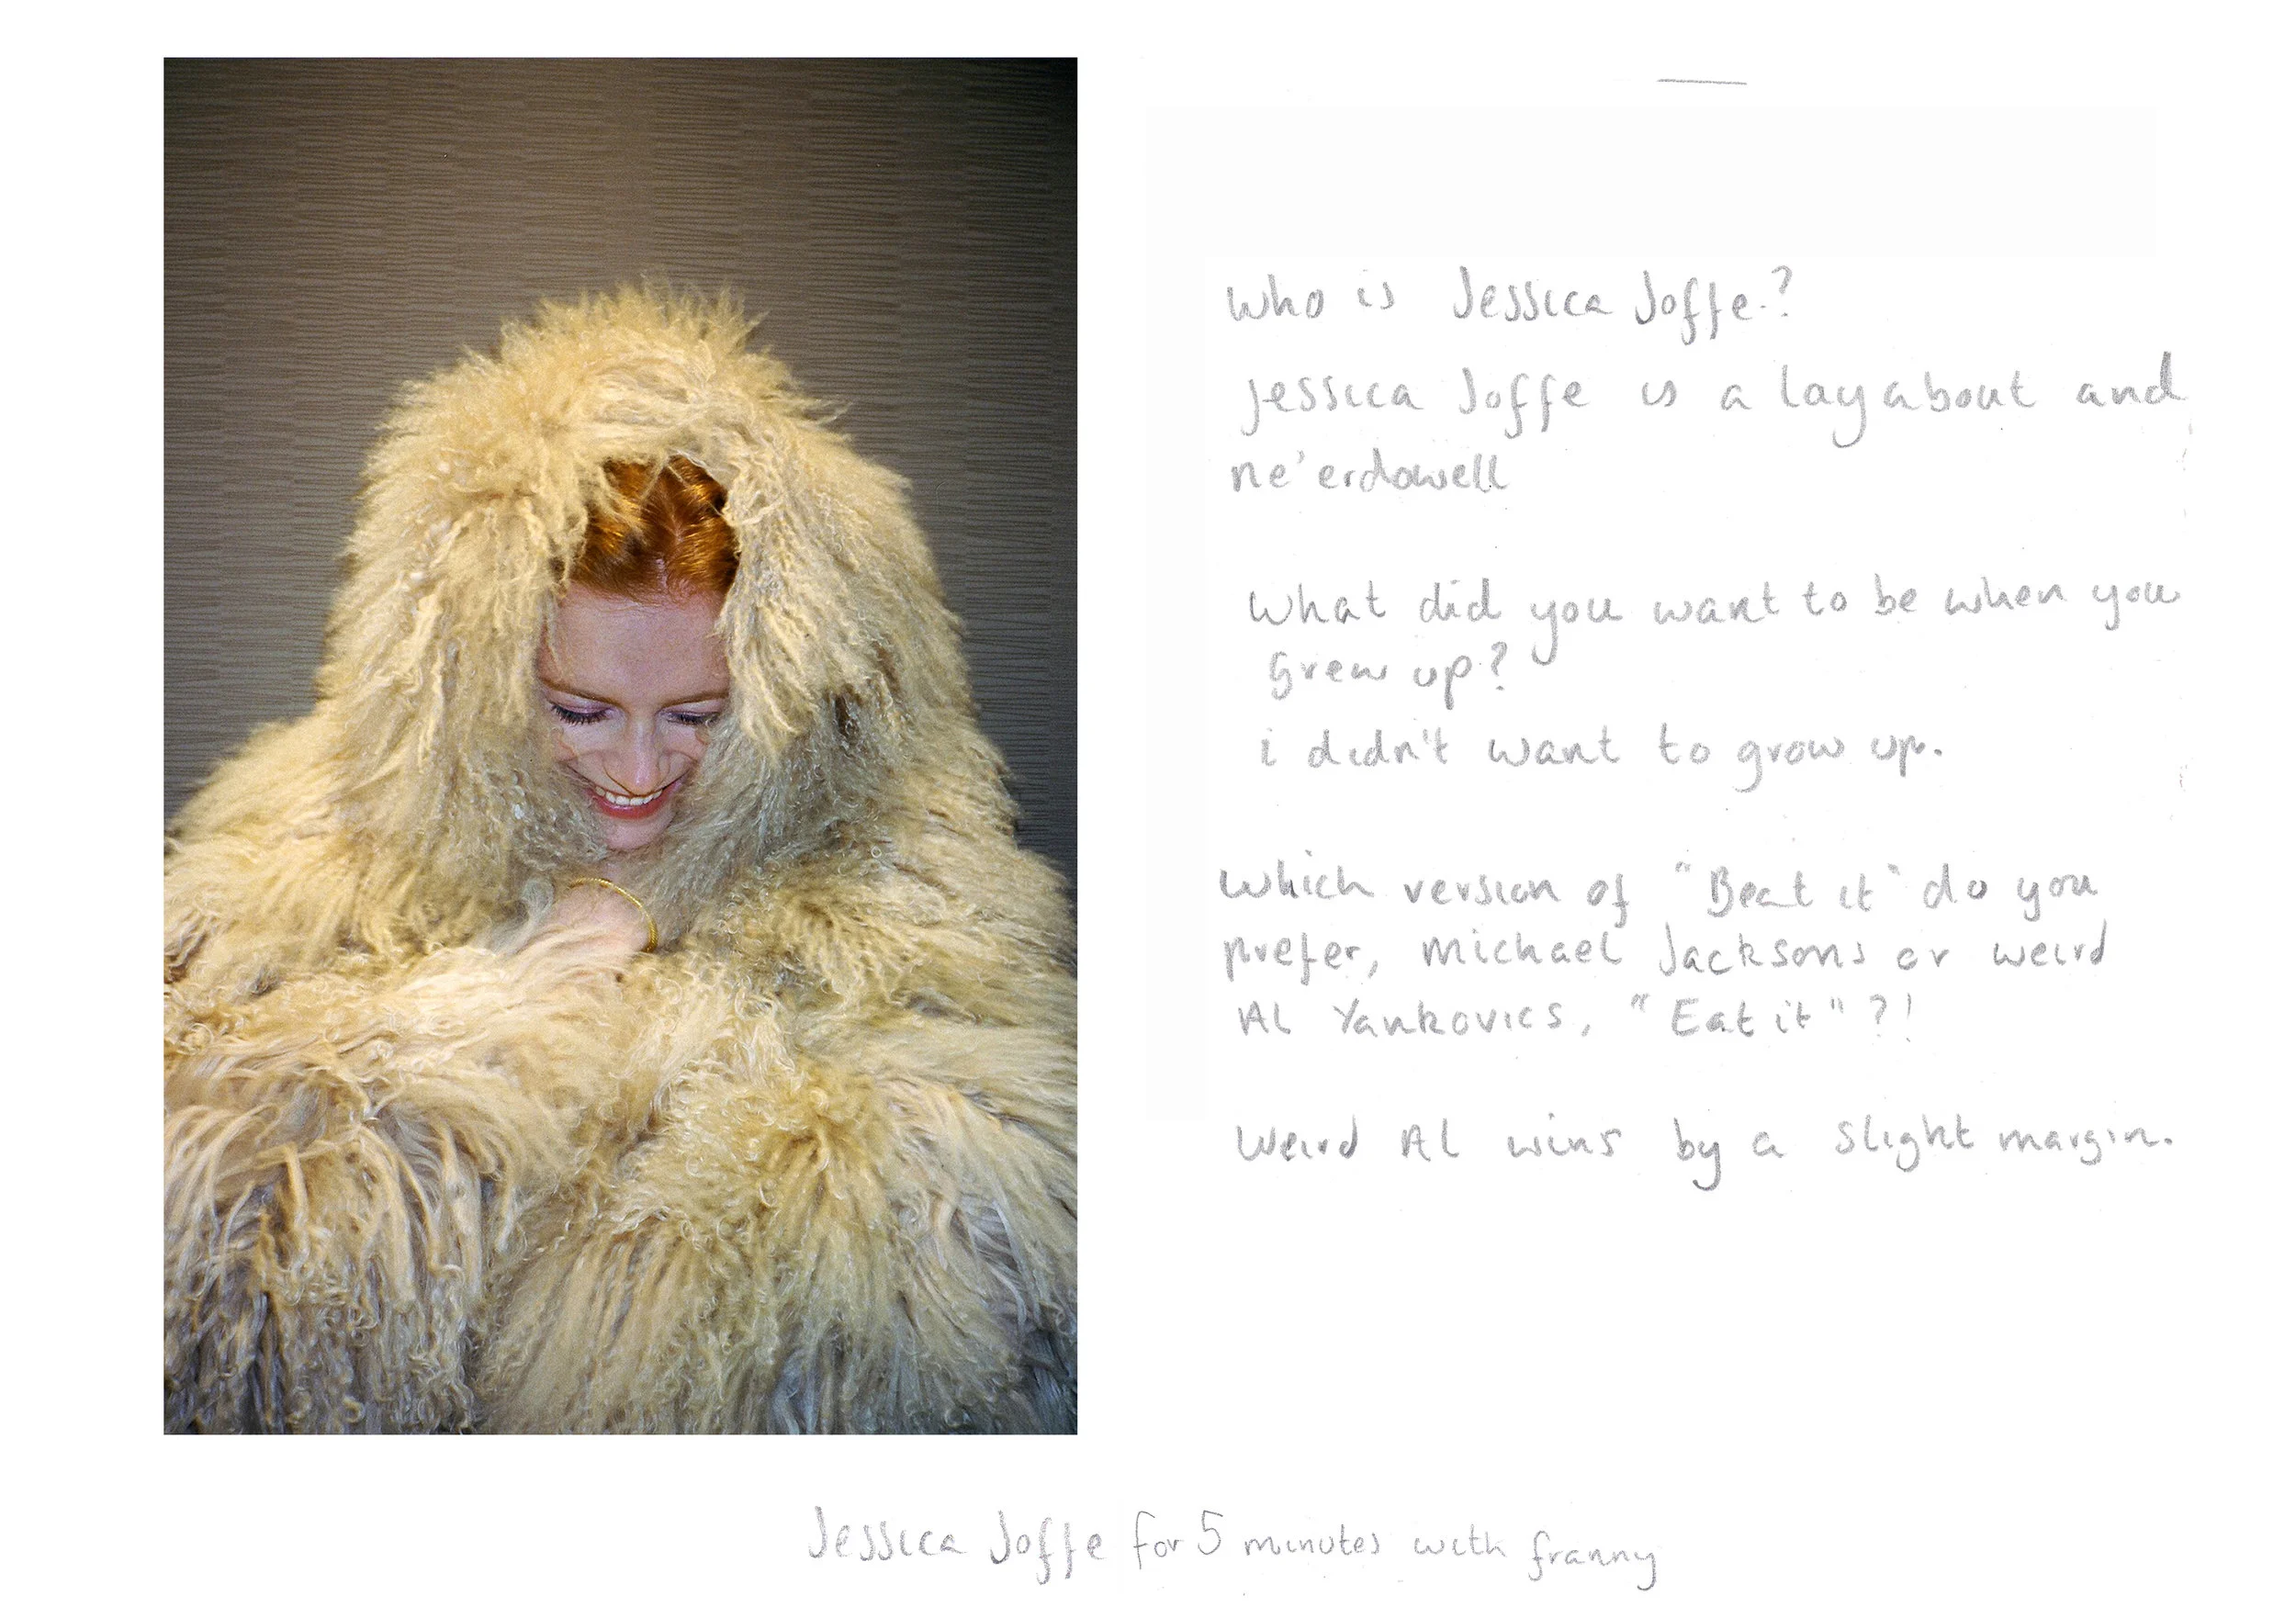 Who is Jessica Joffe?
Jessica Joffe is a layabout and
ne'erdowell
What did you want to be when you
grew up?
i didn't want to grow up.
Which version of "Beat it" do you
prefer, Michael Jacksons or weird
Al Yankovics, "Eat it"?!
Weird Al wins by a slight margin.
Jessica Joffe for 5 minutes with franny